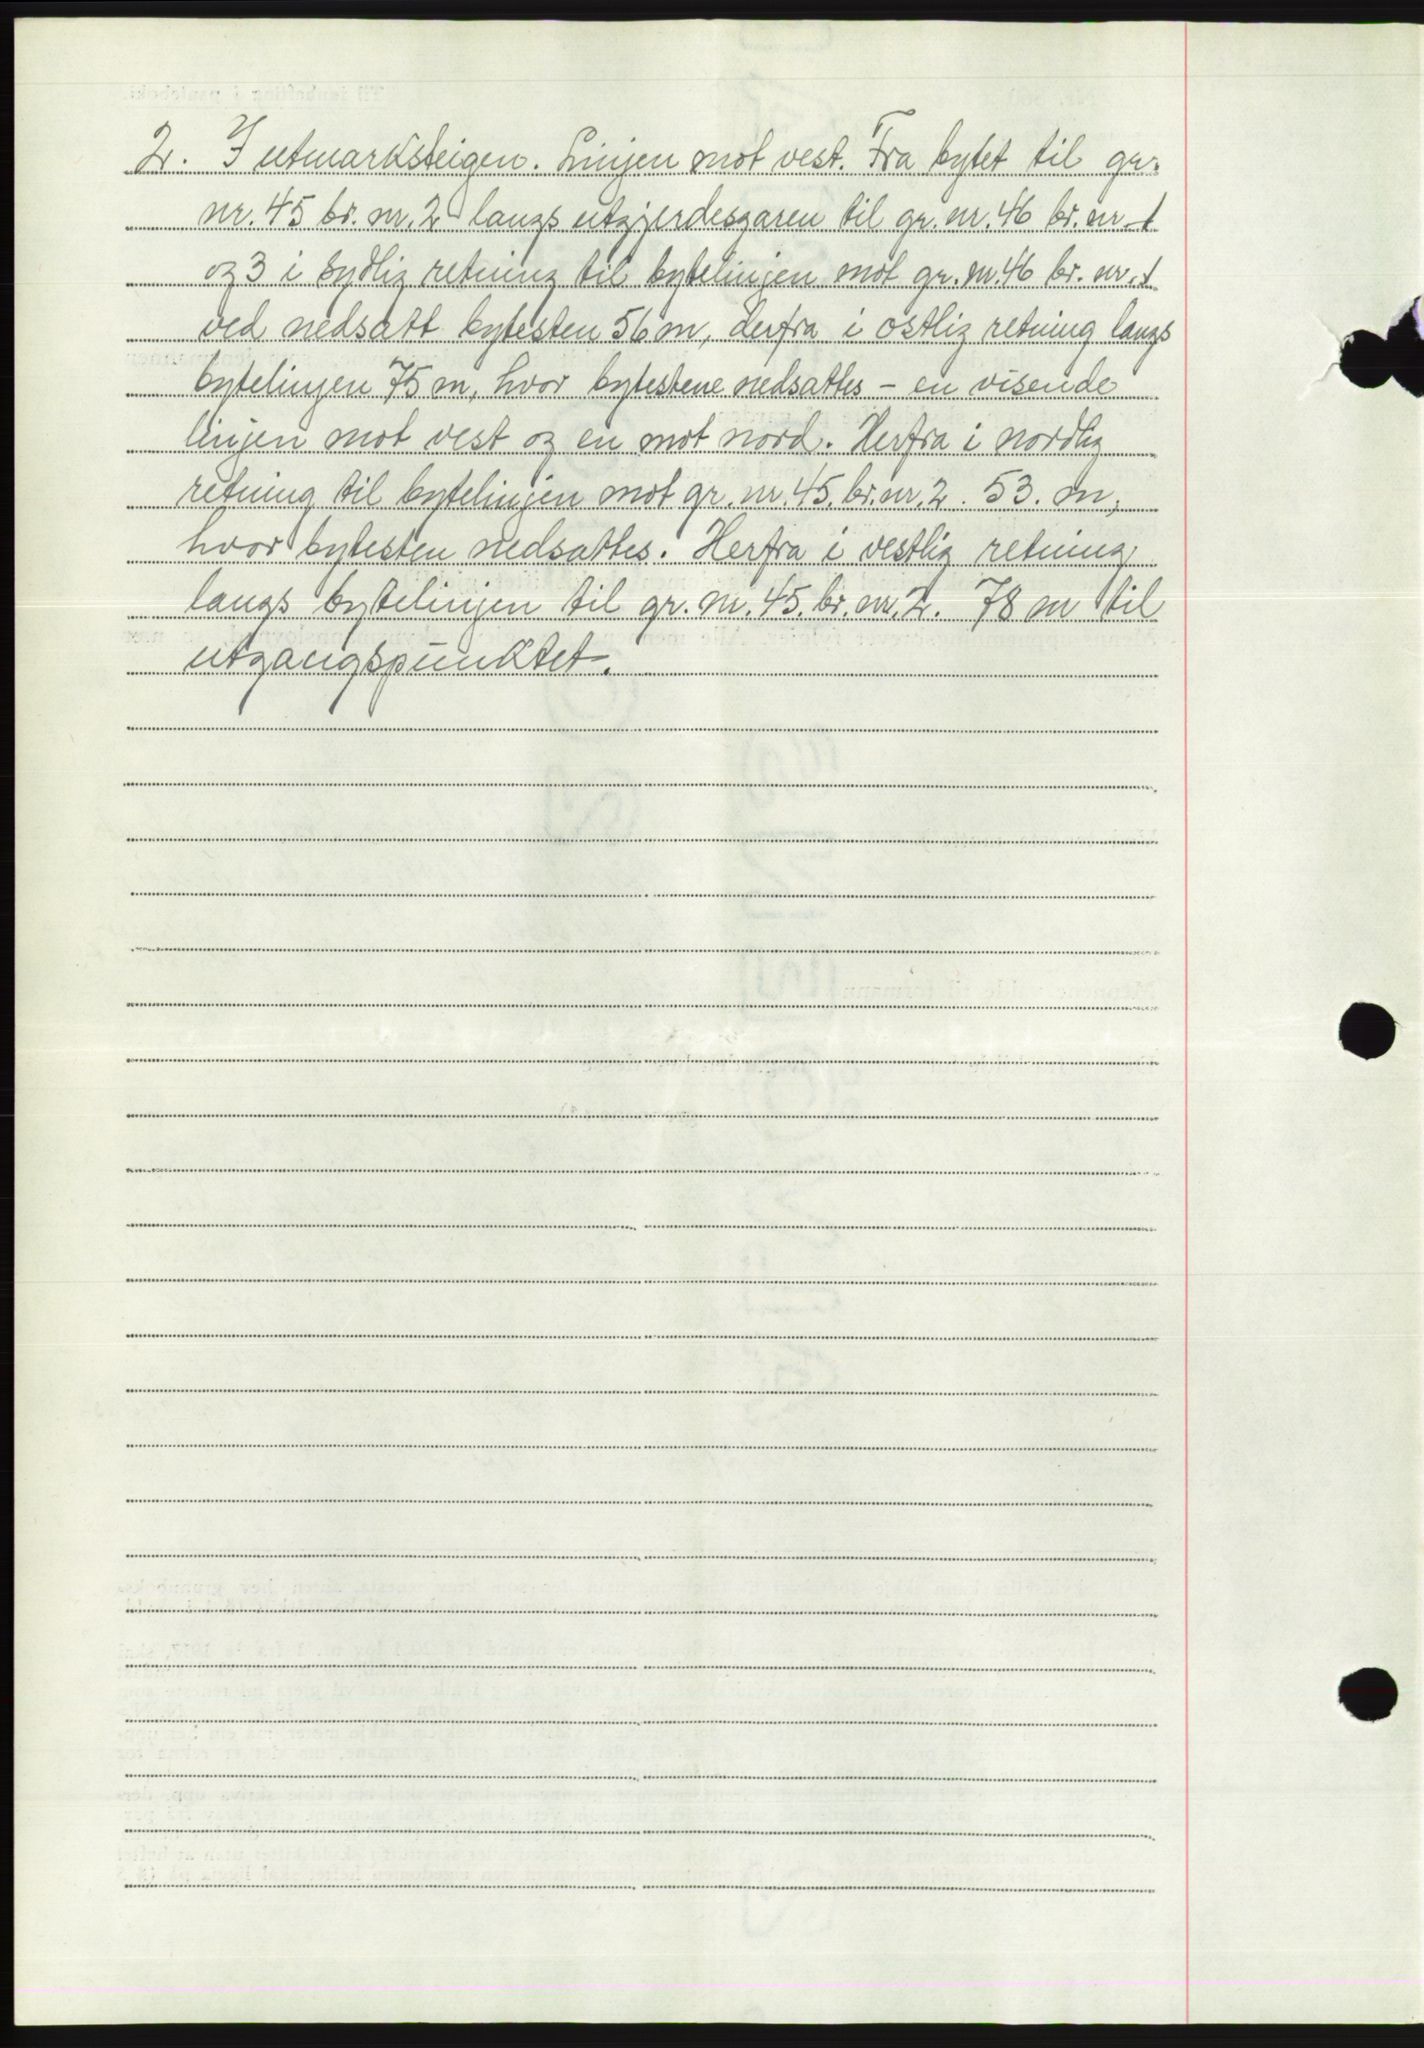 2. I utmarksteigen. Linjen mot vest. Fra bytet til gr.
nr. 45 br. nr. 2 langs utgjerdesgaren til gr. nr. 46 br. nr. 1
og 3 i sydlig retning til bytelinjen mot gr. nr. 46 br. nr. 1
ved nedsatt bytesten 56 m, derfra i östlig retning langs
bytelinjen 75 m, hvor bytestene nedsattes - en visende
linjen mot vest og en mot nord. Herfra i nordlig
retning til bytelinjen mot gr. nr. 45. br. nr. 2. 53. m,
hvor bytesten nedsattes. Herfra i vestlig retning
langs bytelinjen til gr. nr. 45. br. nr. 2. 78 m til
utgangspunktet.